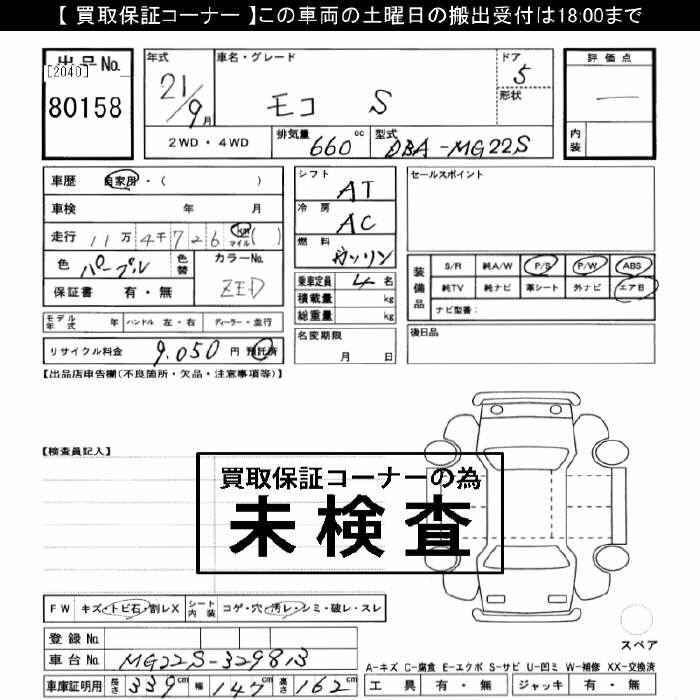 【 買取保証コーナー 】この車両の土曜日の搬出受付は18:00まで
出品No.
[2040]
80158
年式
21/9月
車名・グレード
モコ S
ドア
5
形状
2WD・4WD
排気量 660 cc
型式 DBA-MG22S
評価点
―
内装
車歴 自家用・( )
車検 年 月
走行 11万4千726 km マイル ( )
色 パープル 色替
カラーNo. ZED
保証書 有・無
モデル年式 年 ハンドル 左・右 ディーラー・並行
リサイクル料金 9,050 円 預託済
シフト AT
冷房 AC
燃料 ガソリン
乗車定員 4 名
積載量 kg
総重量 kg
名変期限
月 日
セールスポイント
装備品
S/R 純A/W P/S P/W ABS
純TV 純ナビ 革シート 外ナビ エアB
ナビ型番:
後日品
【出品店申告欄(不良箇所・欠品・注意事項等)】
【検査員記入】
買取保証コーナーの為
未検査
FW キズ・トビ石・割レX シート内装 コゲ・穴・汚レ・シミ・破レ・スレ
登録No.
車台No. MG22S-329813
車庫証明用 長さ 339 cm 幅 147 cm 高さ 162 cm
スペア
A-キズ C-腐食 E-エクボ S-サビ U-凹ミ W-補修 XX-交換済
工具 有・無 ジャッキ 有・無